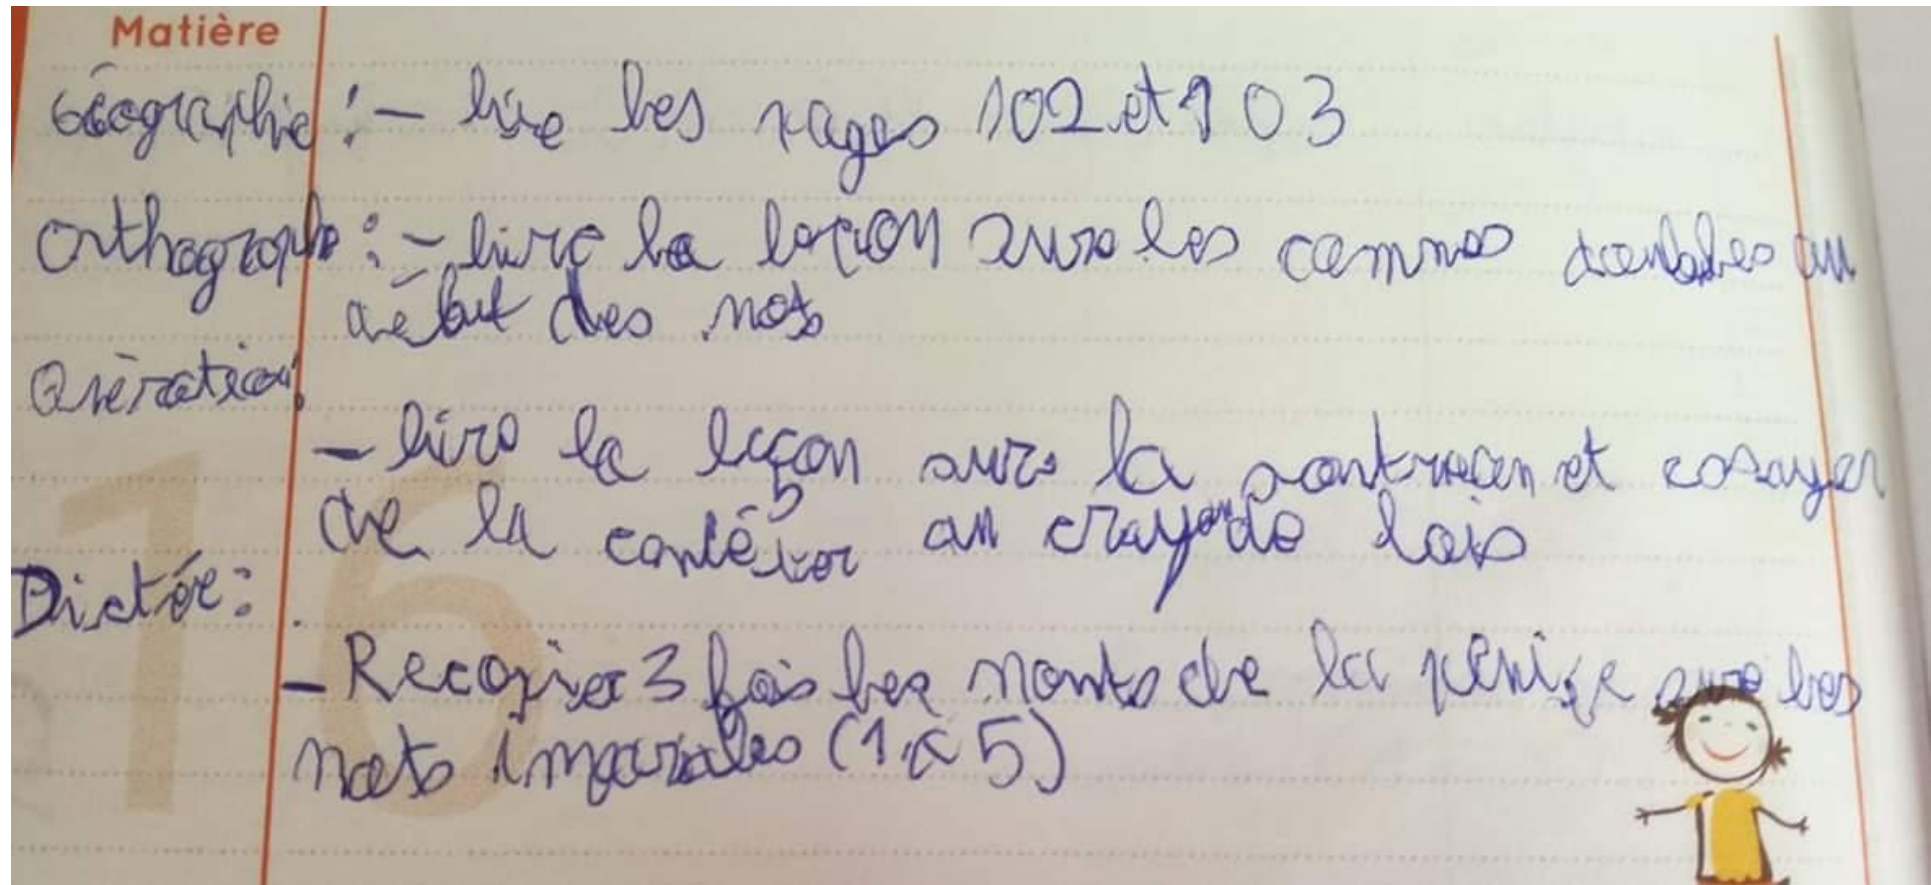 Matière
Géographie : - lire les pages 102 et 103
Orthographe : - lire la leçon sur les consonnes doubles au
début des mots
Opération :
- lire la leçon sur la et essayer
de la compléter au crayon de bois
Dictée :
- Recopier 3 fois les mots de la sur les
mots invariables (1 à 5)
16